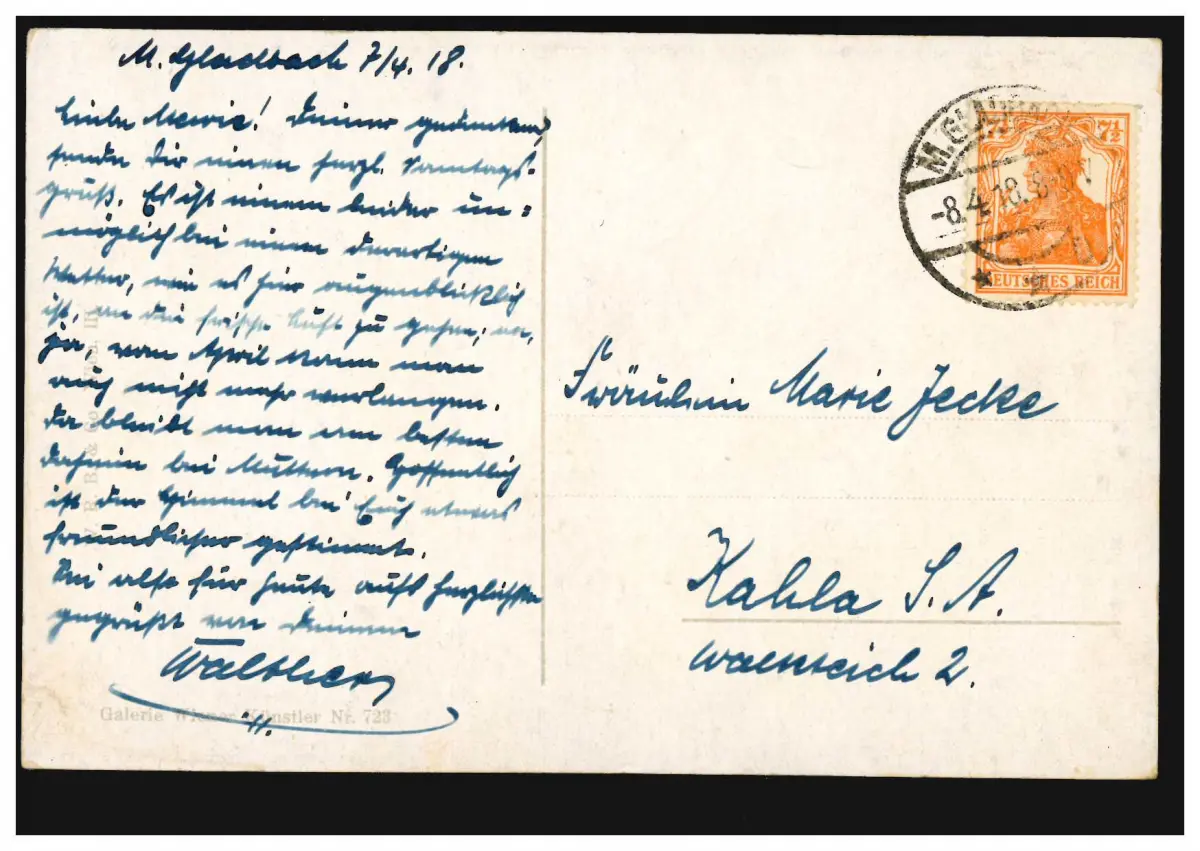 M. Gladbach 7/4. 18.
Liebe Marie! Deiner gedenkend,
sende Dir einen herzl. Sonntags-
gruß. Es ist einem leider un=
möglich bei einem derartigen
Wetter, wie es hier augenblicklich
ist, an die frische Luft zu gehen; na,
ja, vom April kann man
auch nicht mehr verlangen.
Da bleibt man am besten
daheim bei Muttern. Hoffentlich
ist der Himmel bei Euch etwas
freundlicher gestimmt.
Sei also für heute aufs herzlichste
gegrüßt von Deinem
Walther
Galerie Wiener Künstler Nr. 723
M.GLADBACH
-8.4.18. 8-9V.
7½ 7½
DEUTSCHES REICH
Fräulein Marie Jecke
Kahla S. A.
Walkteich 2.